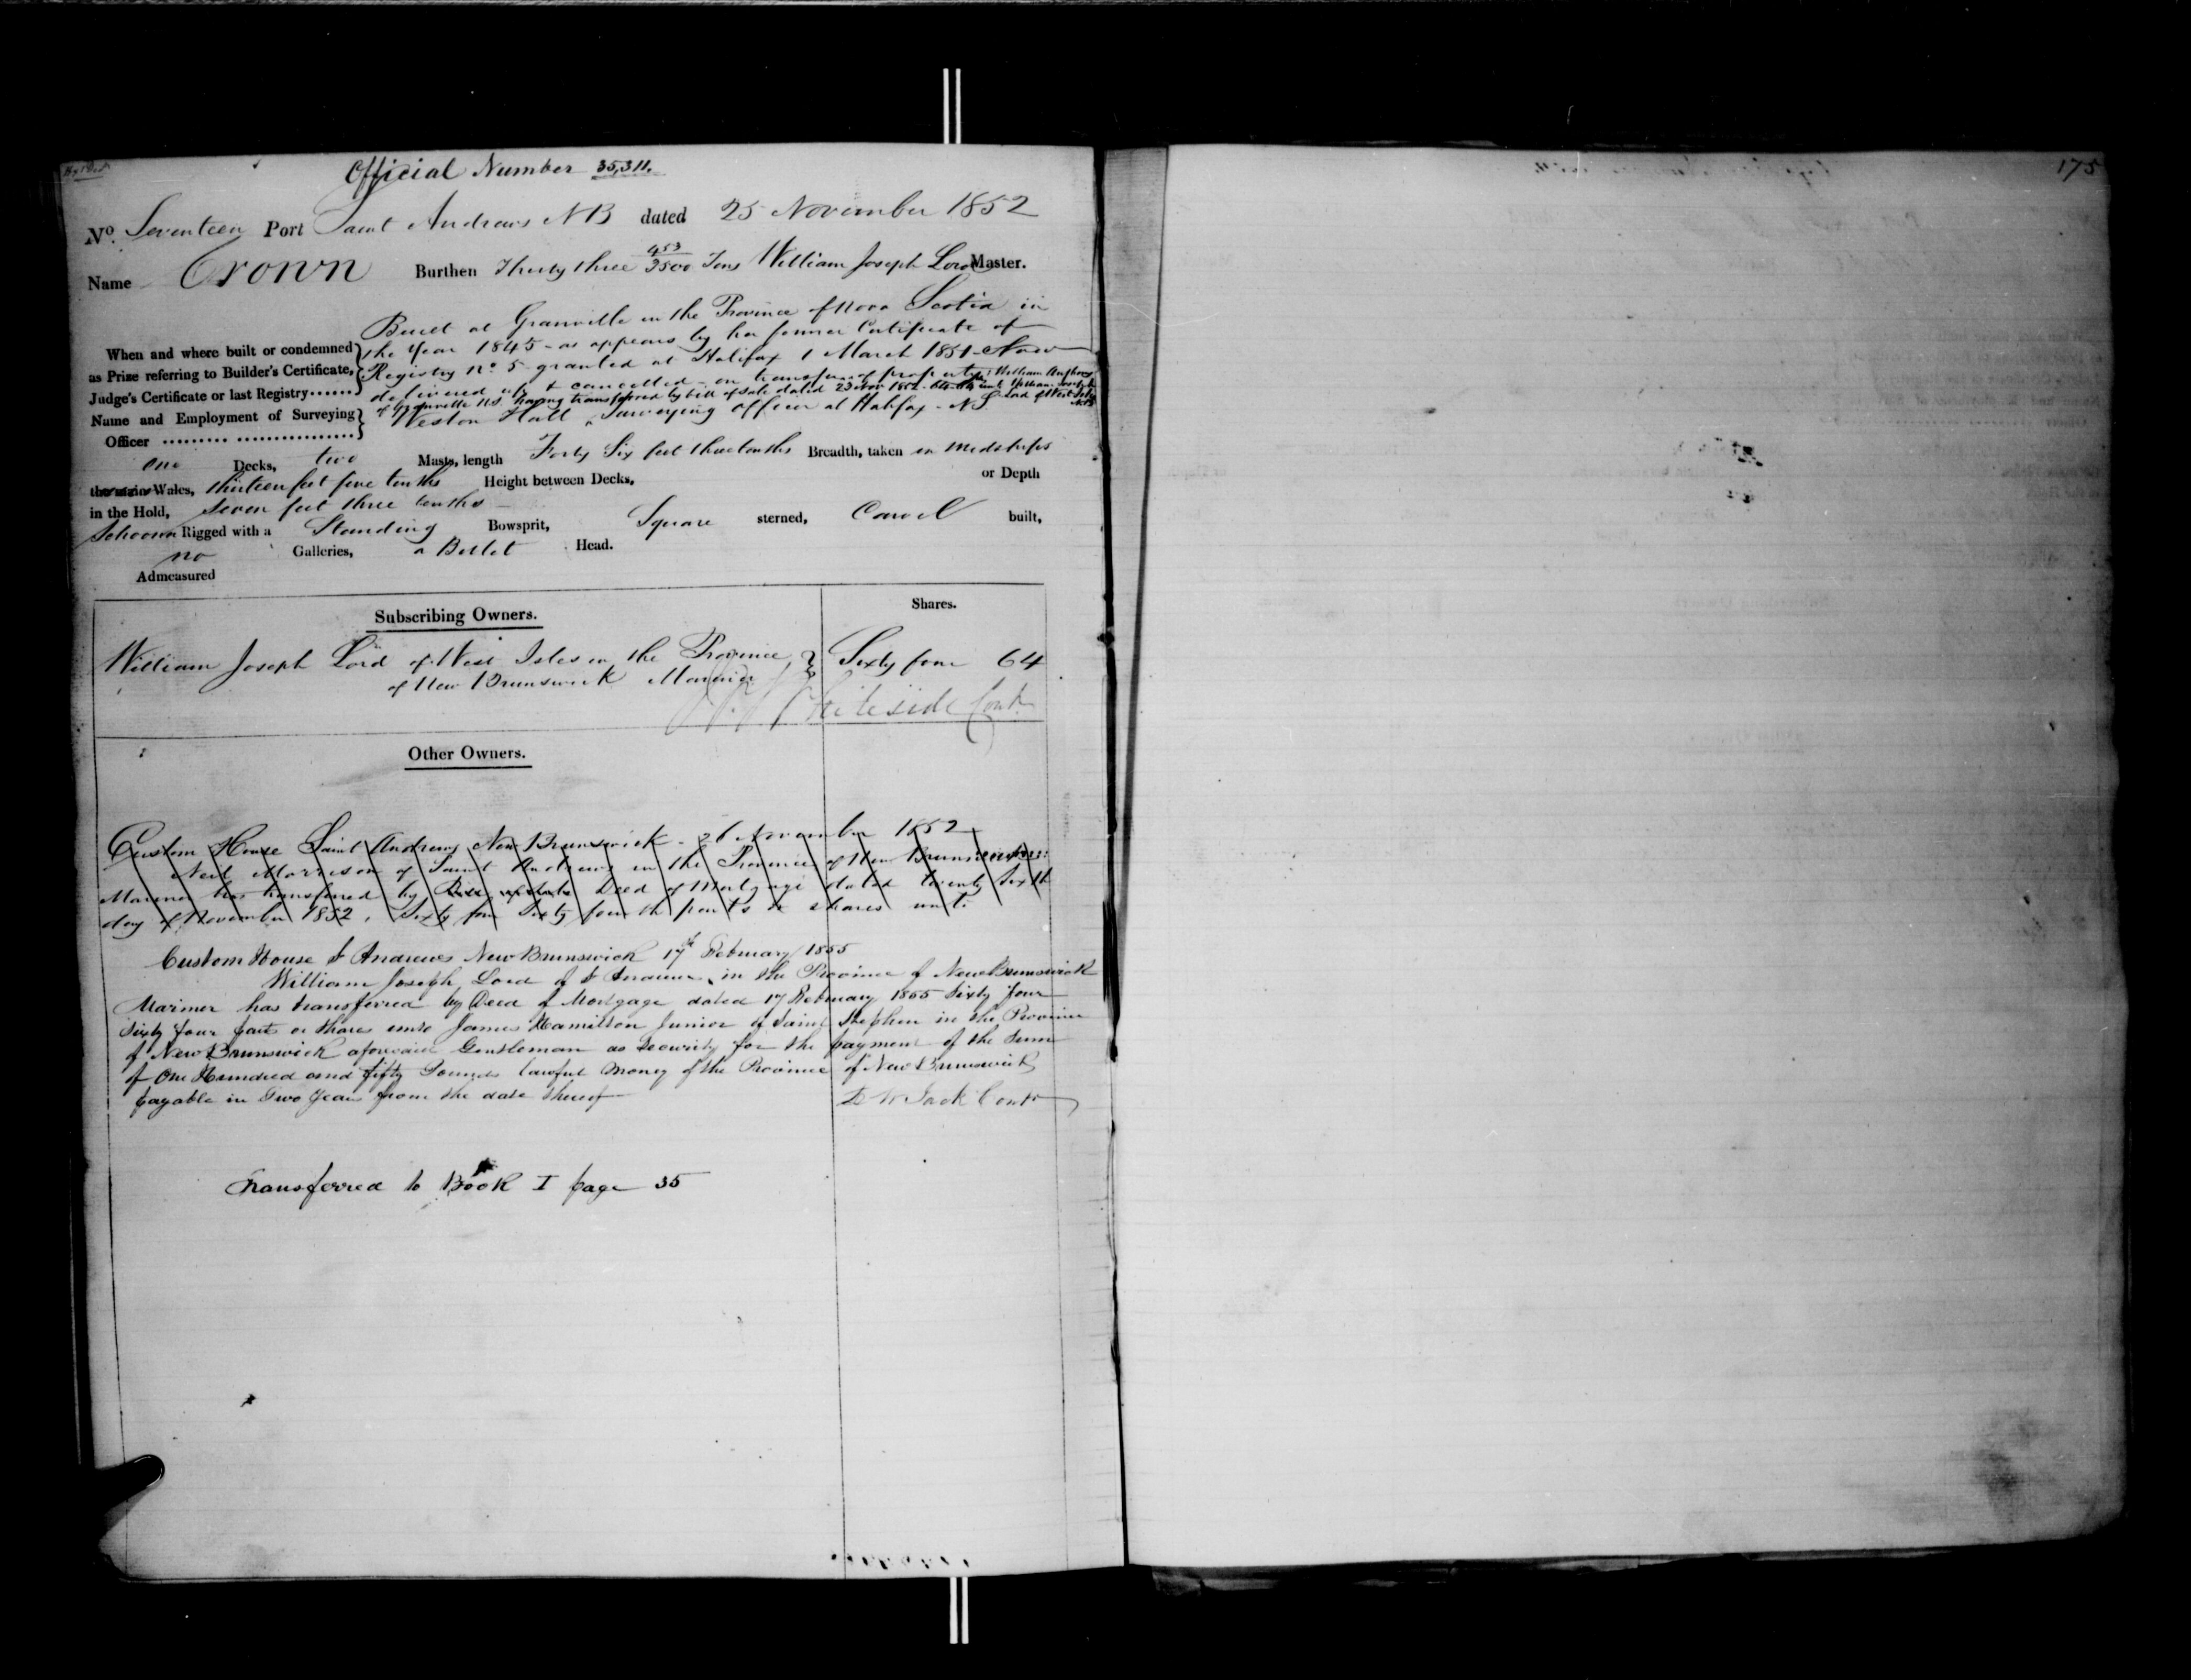 Official Number 35,311.
175
No. Seventeen Port Saint Andrews NB dated 25 November 1852
Name Crown Burthen Thirty three 453/3500 Tons William Joseph Lord Master.
Built at Granville in the Province of Nova Scotia in
When and where built or condemned the Year 1845 - as appears by her former Certificate of
as Prize referring to Builder's Certificate, Registry No. 5 granted at Halifax 1 March 1851 - Now
Judge's Certificate or last Registry...... delivered up & cancelled - on transfer of property; William Anthony
of Granville N.S. having transferred by bill of sale dated 23 Nov 1852 - 64 unto William Joseph Lord of West Isles NB
Name and Employment of Surveying Weston Hall, Surveying Officer at Halifax - N.S.
Officer
One Decks, two Masts, length Forty Six feet three tenths Breadth, taken in Midships
the main Wales, thirteen feet five tenths Height between Decks, or Depth
in the Hold, Seven feet three tenths
Schooner Rigged with a Standing Bowsprit, Square sterned, Carvel built,
no Galleries, a Billet Head.
Admeasured
Subscribing Owners. Shares.
William Joseph Lord of West Isles in the Province Sixty four 64
of New Brunswick Mariner
Whiteside Contr
Other Owners.
Custom House Saint Andrews New Brunswick - 26 November 1852
Neil Morrison of Saint Andrews in the Province of New Brunswick
Mariner has transferred by Deed of Mortgage dated twenty Sixth
day of November 1852, Sixty four Sixty fourth parts or shares unto
Custom House St Andrews New Brunswick 17th February 1855
William Joseph Lord of St Andrews, in the Province of New Brunswick
Mariner has transferred by Deed of Mortgage dated 17 February 1855 Sixty four
Sixty four parts or shares unto James Hamilton Junior of Saint Stephen in the Province
of New Brunswick aforesaid Gentleman as security for the payment of the Sum
of One Hundred and fifty Pounds lawful money of the Province of New Brunswick
payable in Two Years from the date thereof
D W Jack Contr
Transferred to Book I page 35